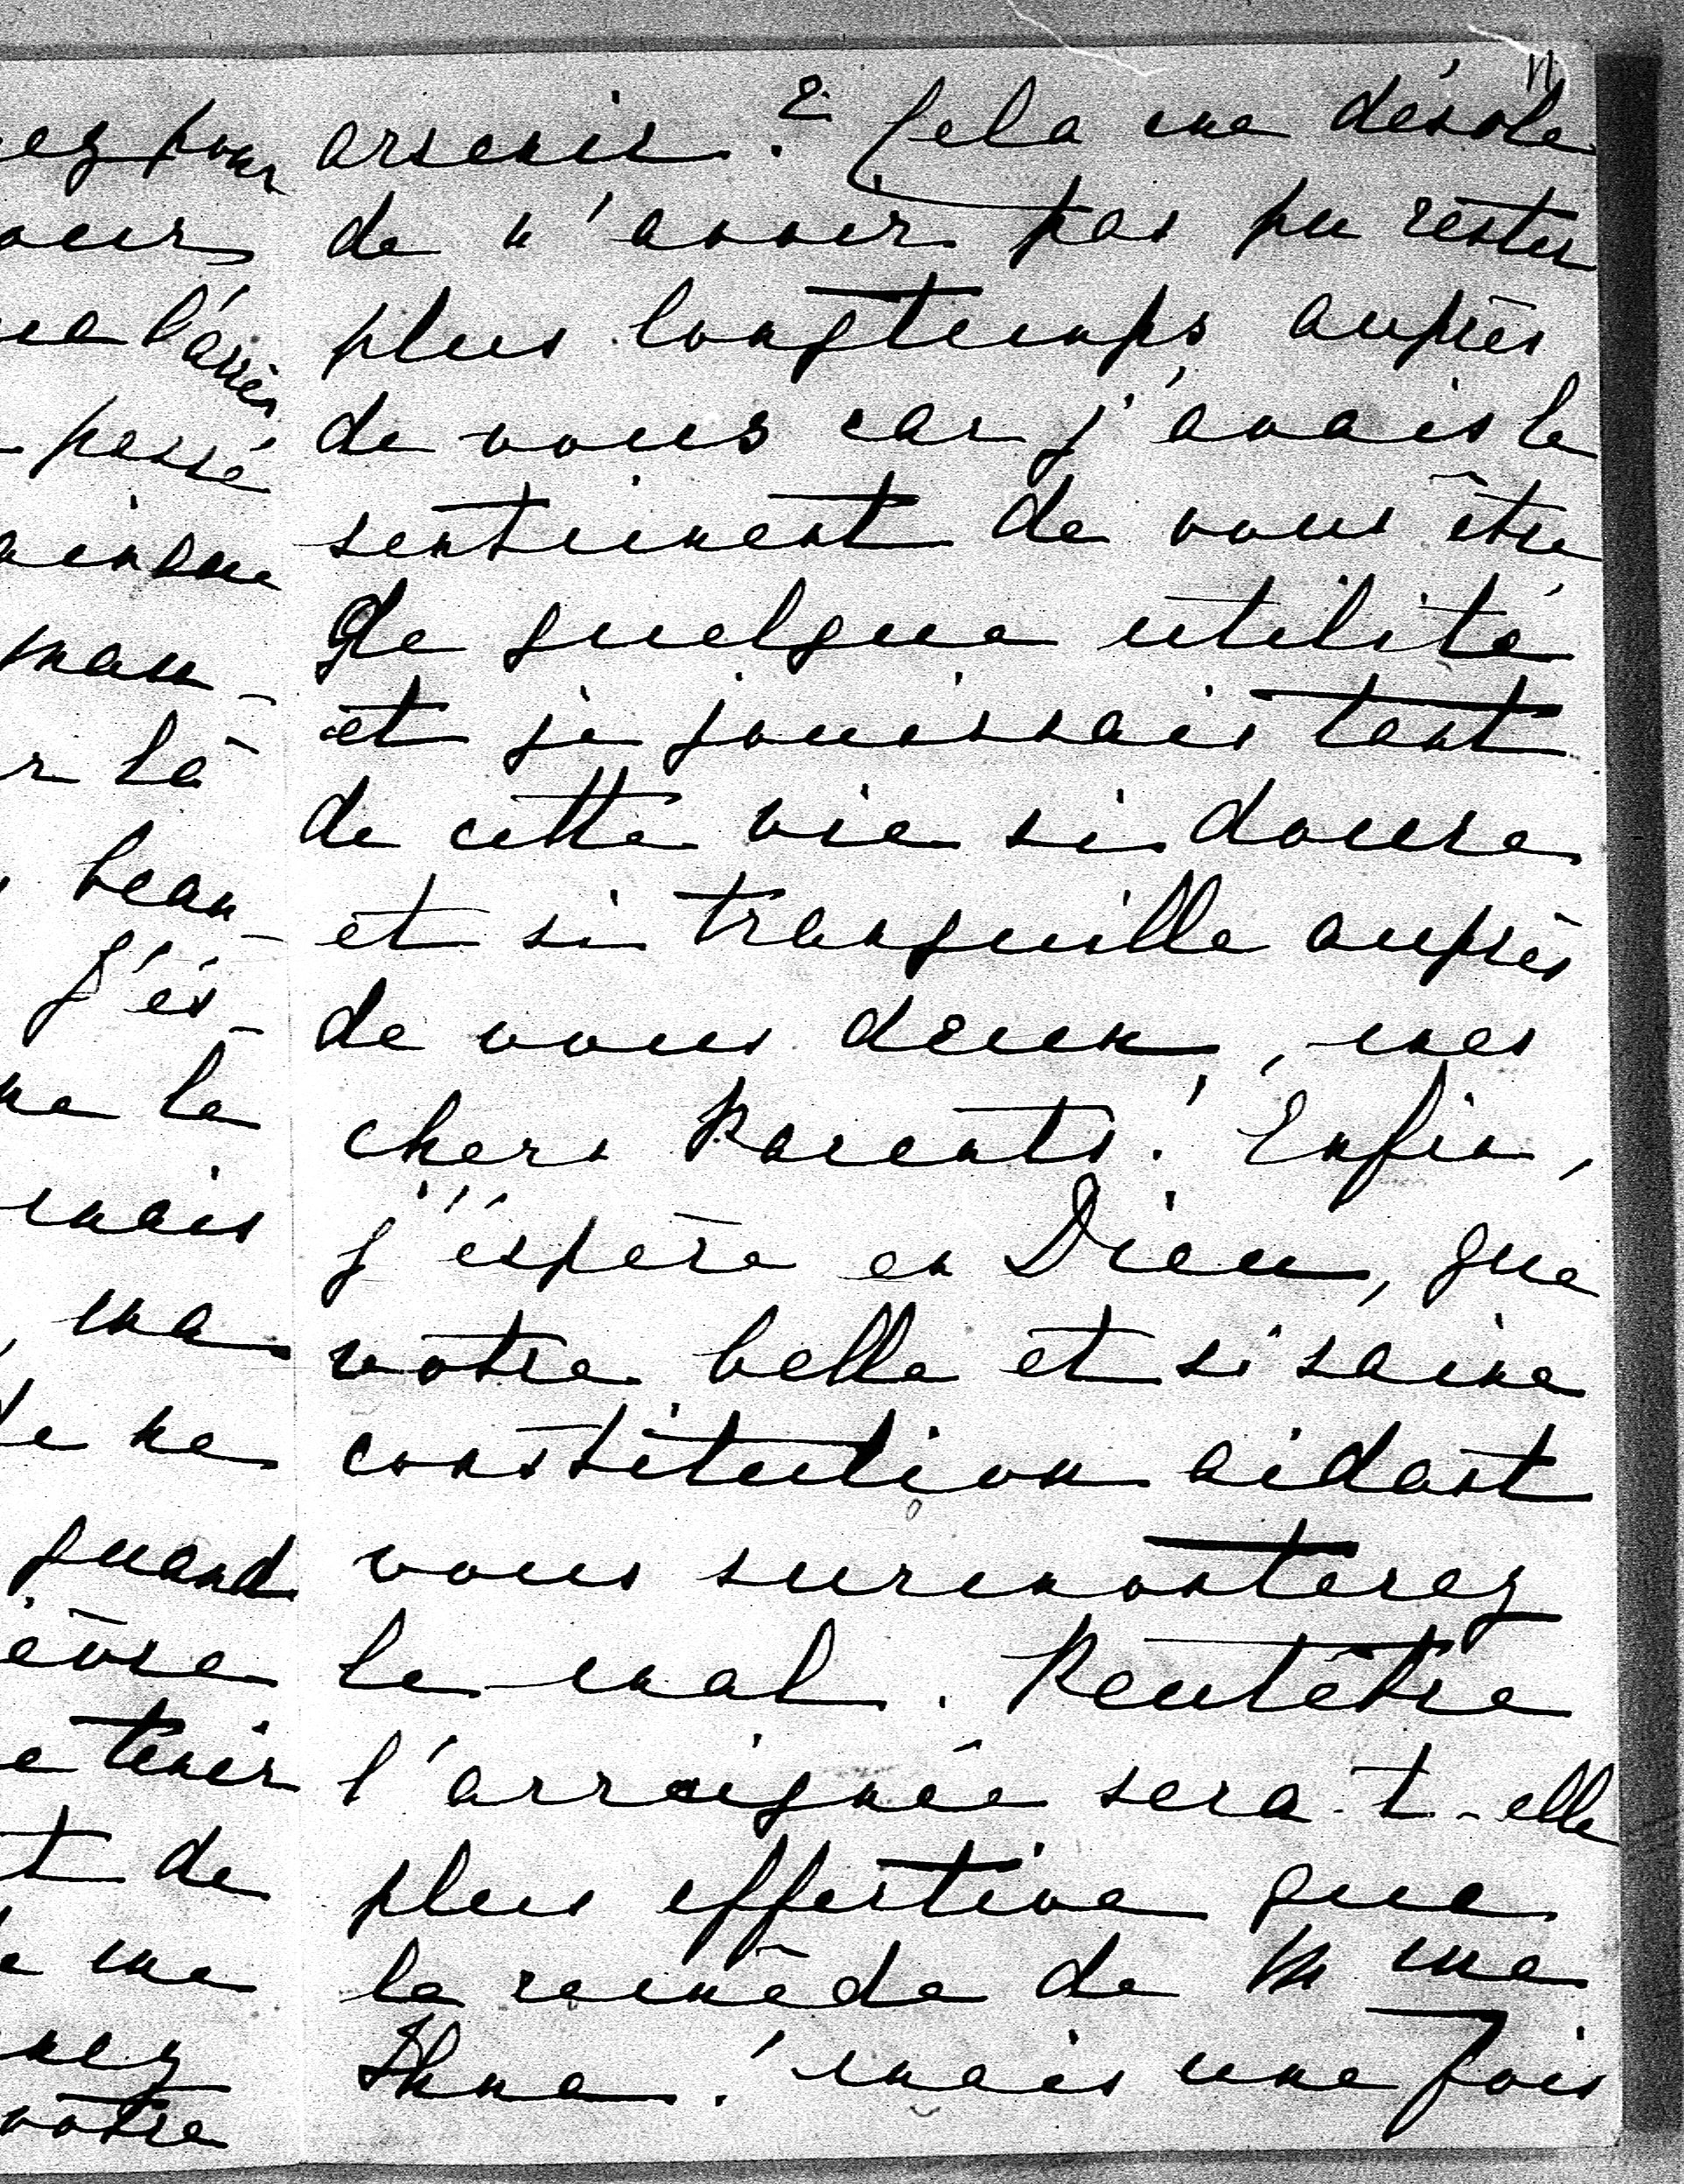 arsenic? Cela me désole
de n'avoir pas pu rester
plus longtemps auprès
de vous car j'avais le
sentiment de vous être
de quelque utilité
et je jouissais tant
de cette vie si douce
et si tranquille auprès
de vous deux, mes
chers Parents! Enfin,
j'éspère en Dieu, que
votre belle et si saine
constitution aidant
vous surmonterez
le mal. Peutêtre
l'arraignée sera-t-elle
plus effective que
le remède de Mme
mais une fois
ez pour
l'arrièr
passé
mau-
r là
beau-
J'és-
la
mais
ma
ne
quand
tenir
t de
me
nez
votre